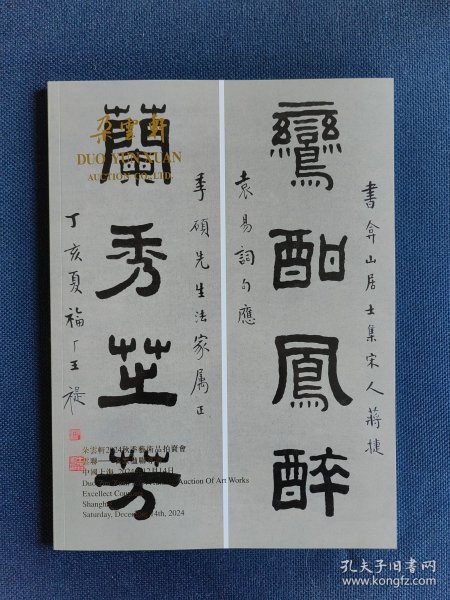 朵雲軒
DUO YUN XUAN
AUCTION CO., LTD.
書弇山居士集宋人蔣捷
鸞酣鳳醉
袁易詞句應
季碩先生法家属正
蘭秀芷芳
丁亥夏福厂王禔
朵雲軒2024秋季藝術品拍賣會
雲聯
中國上海 2024 12月14日
Duo Yun Auction Of Art Works
Excellect
Shanghai
Saturday, 4th, 2024
孔夫子旧书网
www.kongfz.com